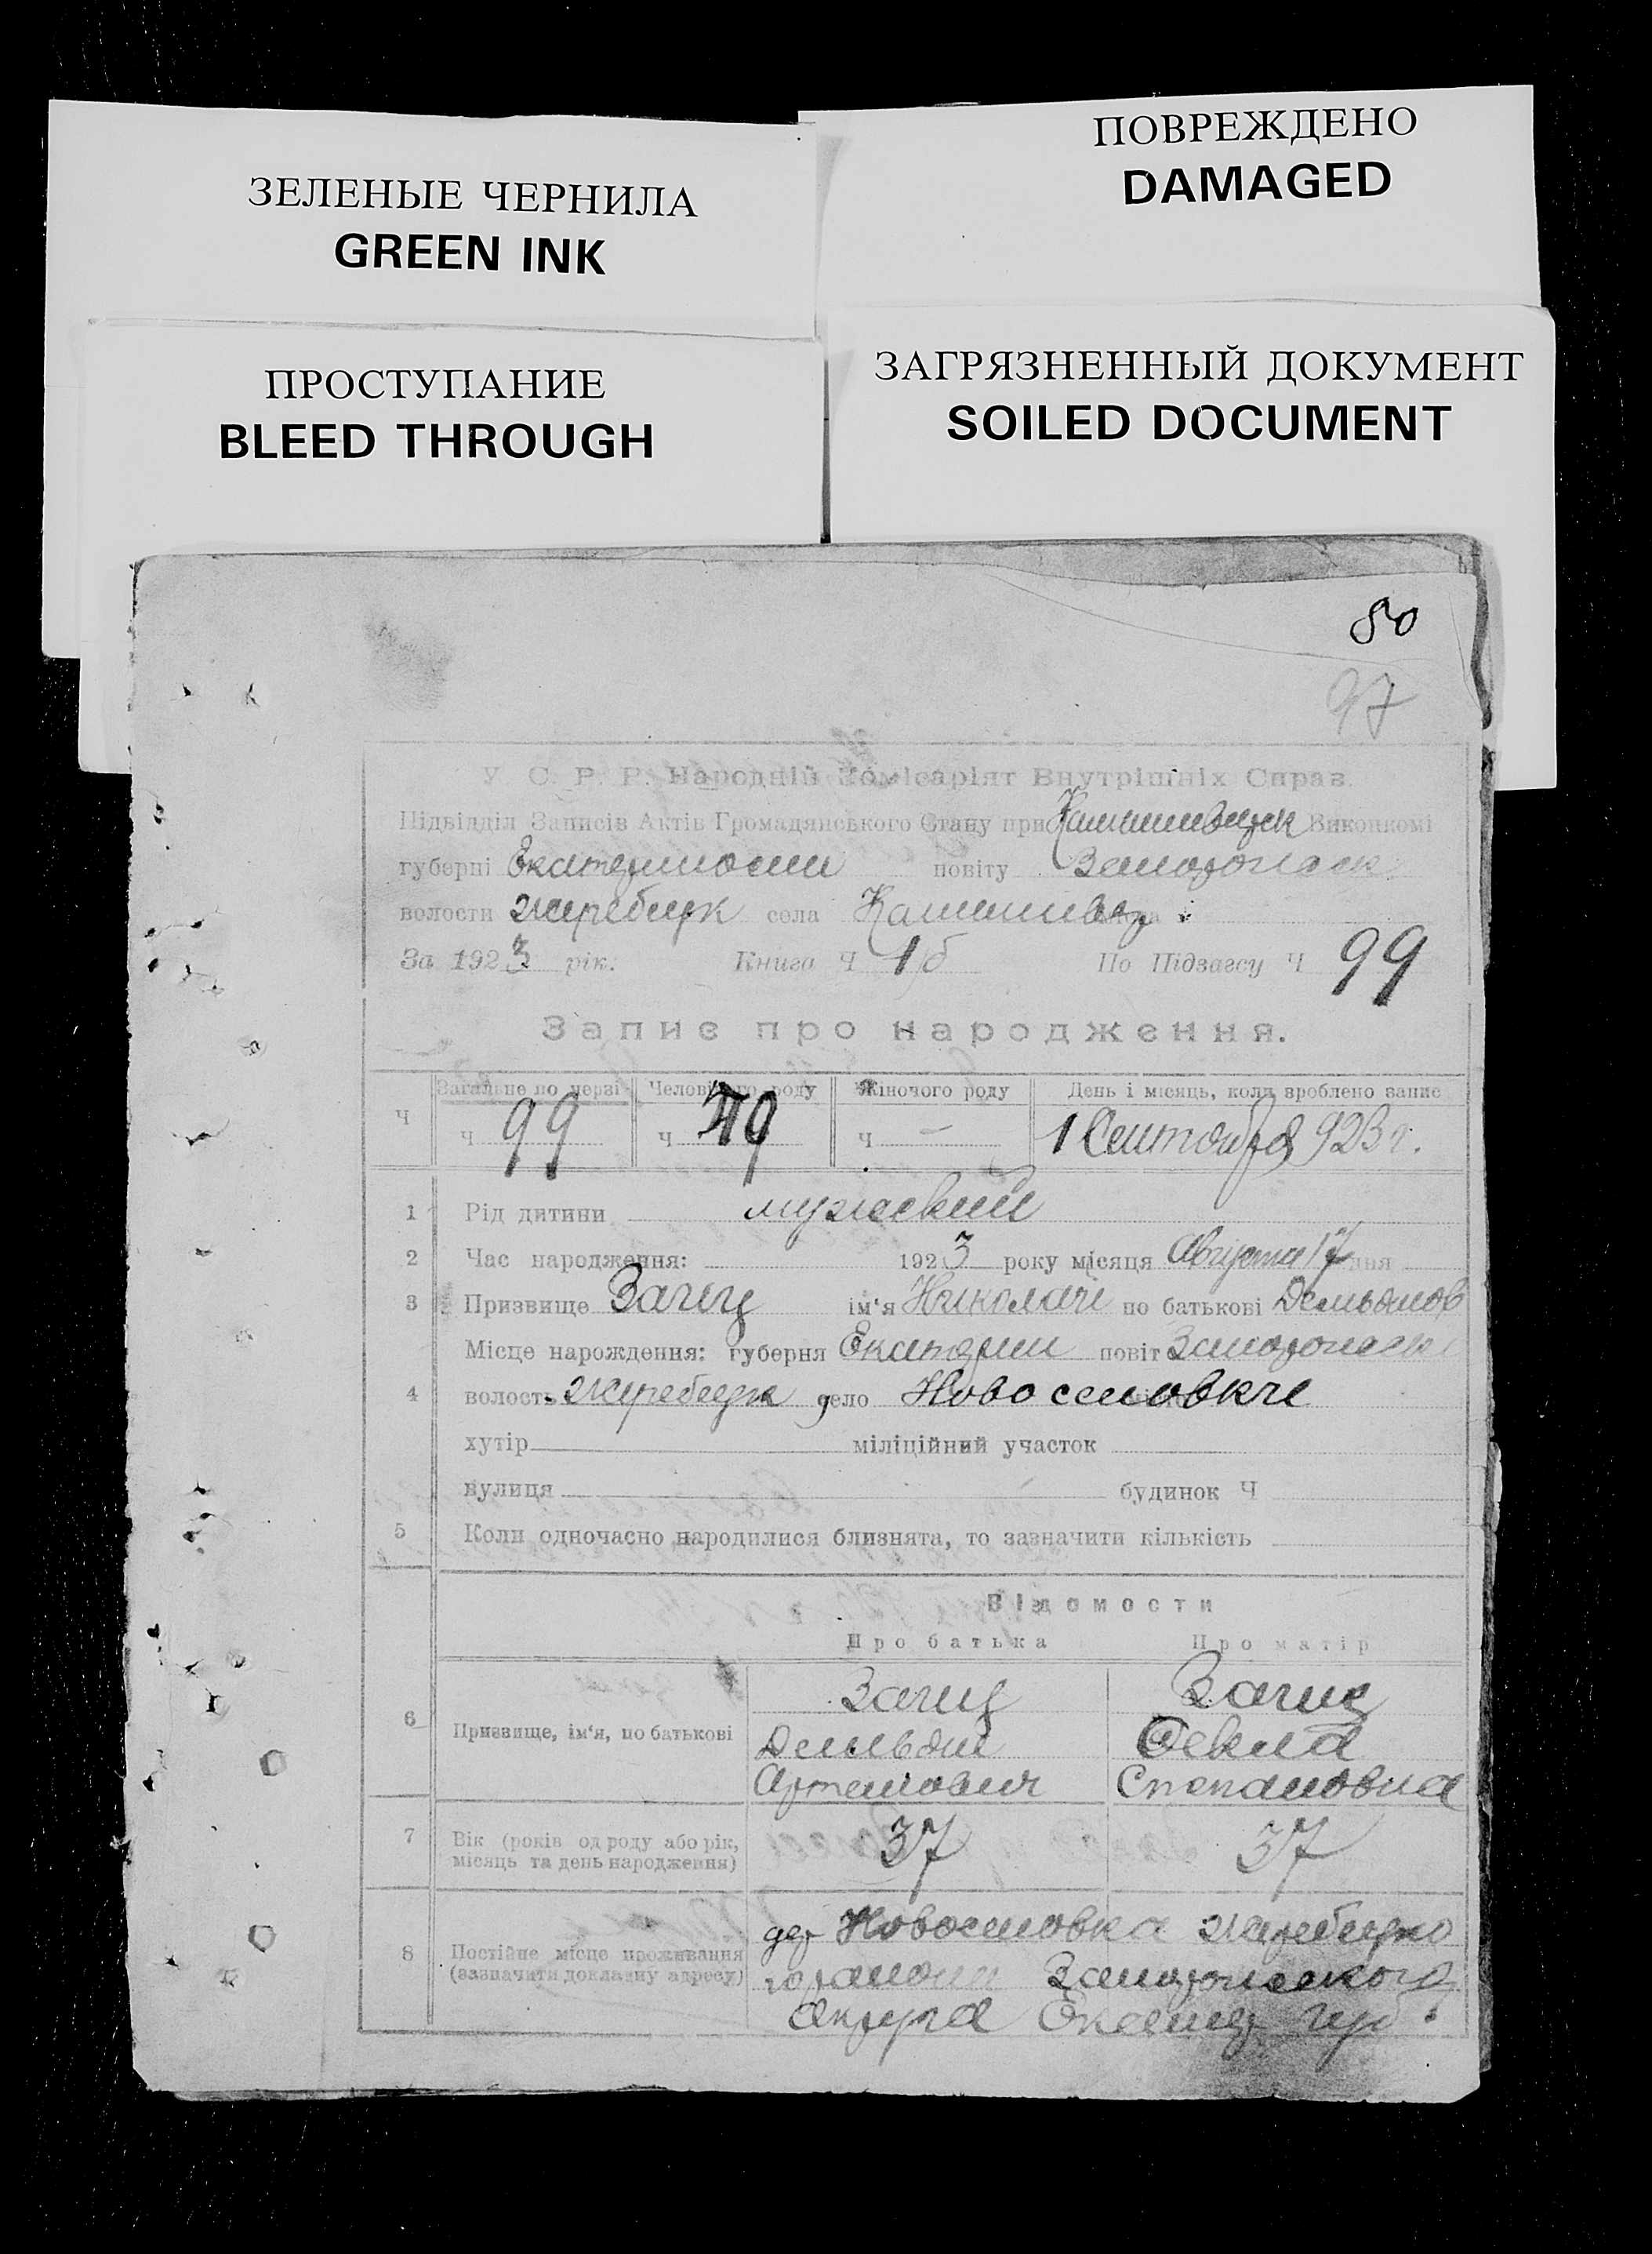 ПОВРЕЖДЕНО
DAMAGED
ЗЕЛЕНЫЕ ЧЕРНИЛА
GREEN INK
ЗАГРЯЗНЕННЫЙ ДОКУМЕНТ
SOILED DOCUMENT
ПРОСТУПАНИЕ
BLEED THROUGH
80
97
У. С. Р. Р. Народній Комісаріят Внутрішніх Справ.
Підвідділ Записів Актів Громадянського Стану при Виконкомі
губерні повіту
волости Жеребецк села
За 1923 рік. Книга Ч 1б По Підзагсу Ч 99
Запис про народження.
Загальне по черзі Человічого роду Жіночого роду День і місяць, коли зроблено запис
Ч ч 99 ч 49 ч — 1 Сентября 923 г.
1 Рід дитини мужский
2 Час народження: 1923 року місяця Августа 17 дня
3 Призвище Заяц ім'я Николай по батькові Демьянов
Місце нарождення: губерня Екатерин повіт Запорожск
4 волость Жеребецк село Новоселовке
хутір міліційний участок
вулиця будинок Ч
5 Коли одночасно народилися близнята, то зазначити кількість
Відомости
Про батька Про матір
6 Призвище, ім'я, по батькові Заяц Заяц
Демьян Фекла
Артемович Степановна
7 Вік (років од роду або рік, місяць та день народження) 37 37
8 Постійне місце проживання (зазначити докладну адресу) дер Новоселовка Жеребецко
го района Запорожского
округа Екатер губ.